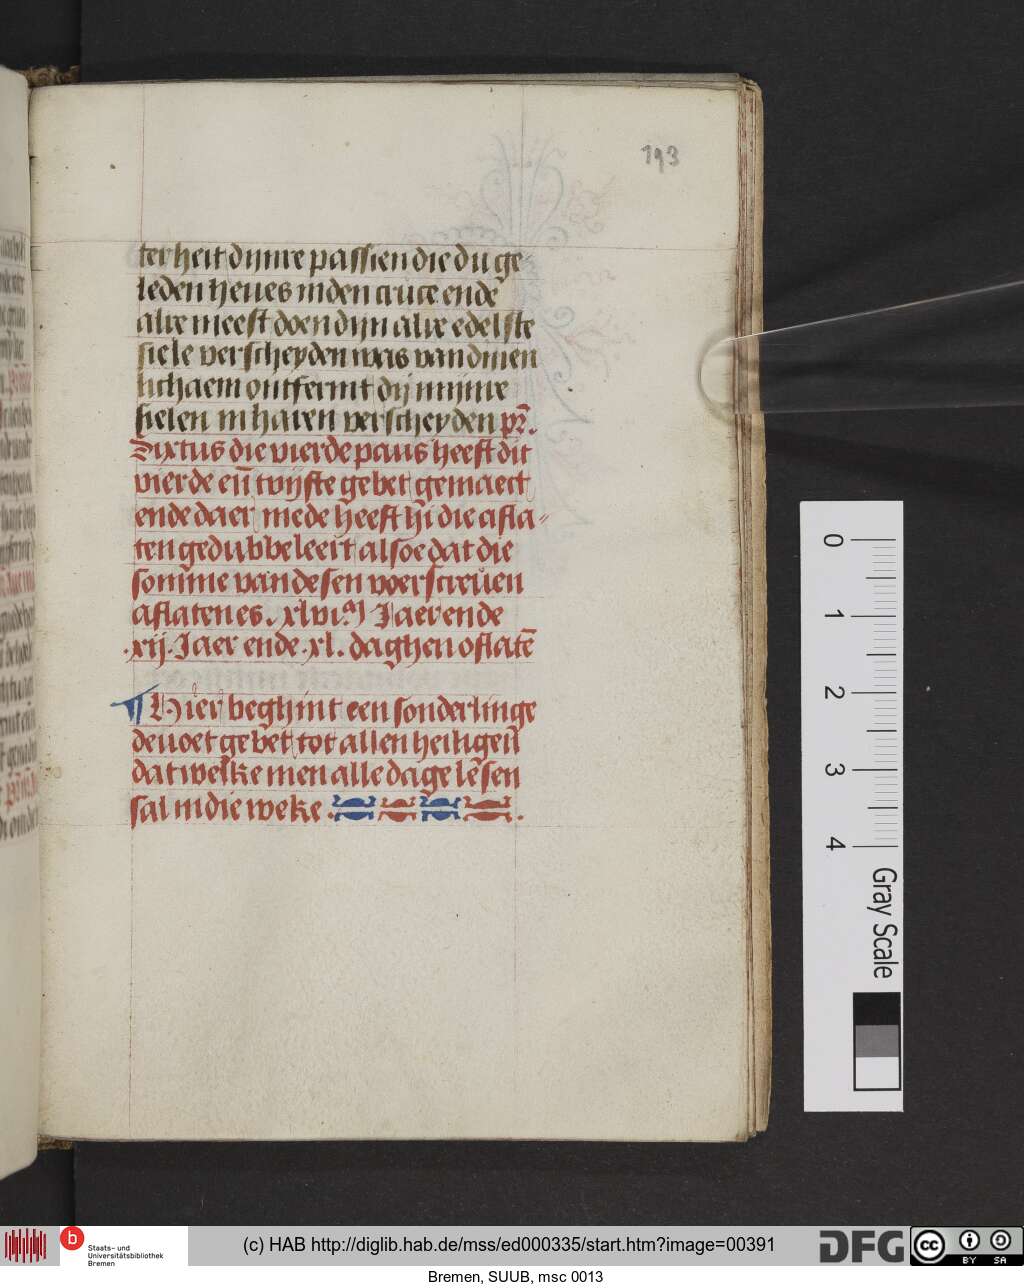 193
terheit dijnre passien die du ge
leden heues in den cruce ende
alre meest doen dijn alre edelste
siele verscheyden was van dinen
lichaem ontfermt dij mijnre
sielen in haren verscheyden pr̄.
Sixtus die vierde paus heeft dit
vierde eñ twijfte gebet gemaect
ende daer mede heeft hi die afla-
ten gedubbeleert alsoe dat die
somme van desen voerscreuen
aflaten es. xlvi.m Jaer ende
.xij. Jaer ende .xl. daghen oflatē
¶ Hier beghint een sonderlinge
deuoet gebet tot allen heiligen
dat welke men alle dage lesen
sal in die weke.
0
1
2
3
4
Gray Scale
b Staats- und
Universitätsbibliothek
Bremen
(c) HAB http://diglib.hab.de/mss/ed000335/start.htm?image=00391
DFG
cc BY SA
Bremen, SUUB, msc 0013